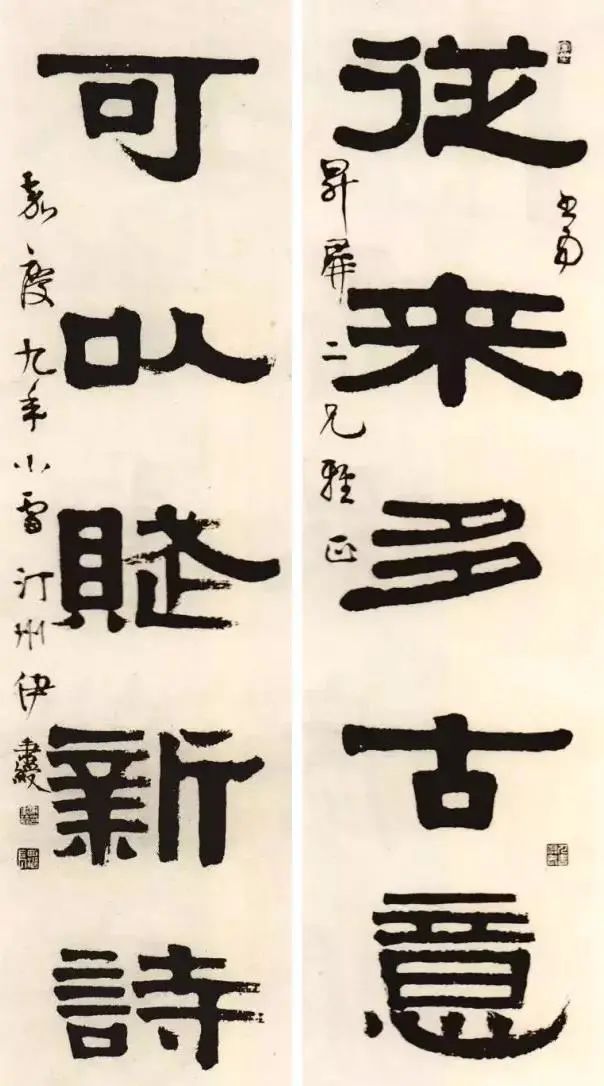 從来多古意
書為
昇屏二兄雅正
可以賦新詩
嘉慶九年小雪汀州伊秉綬